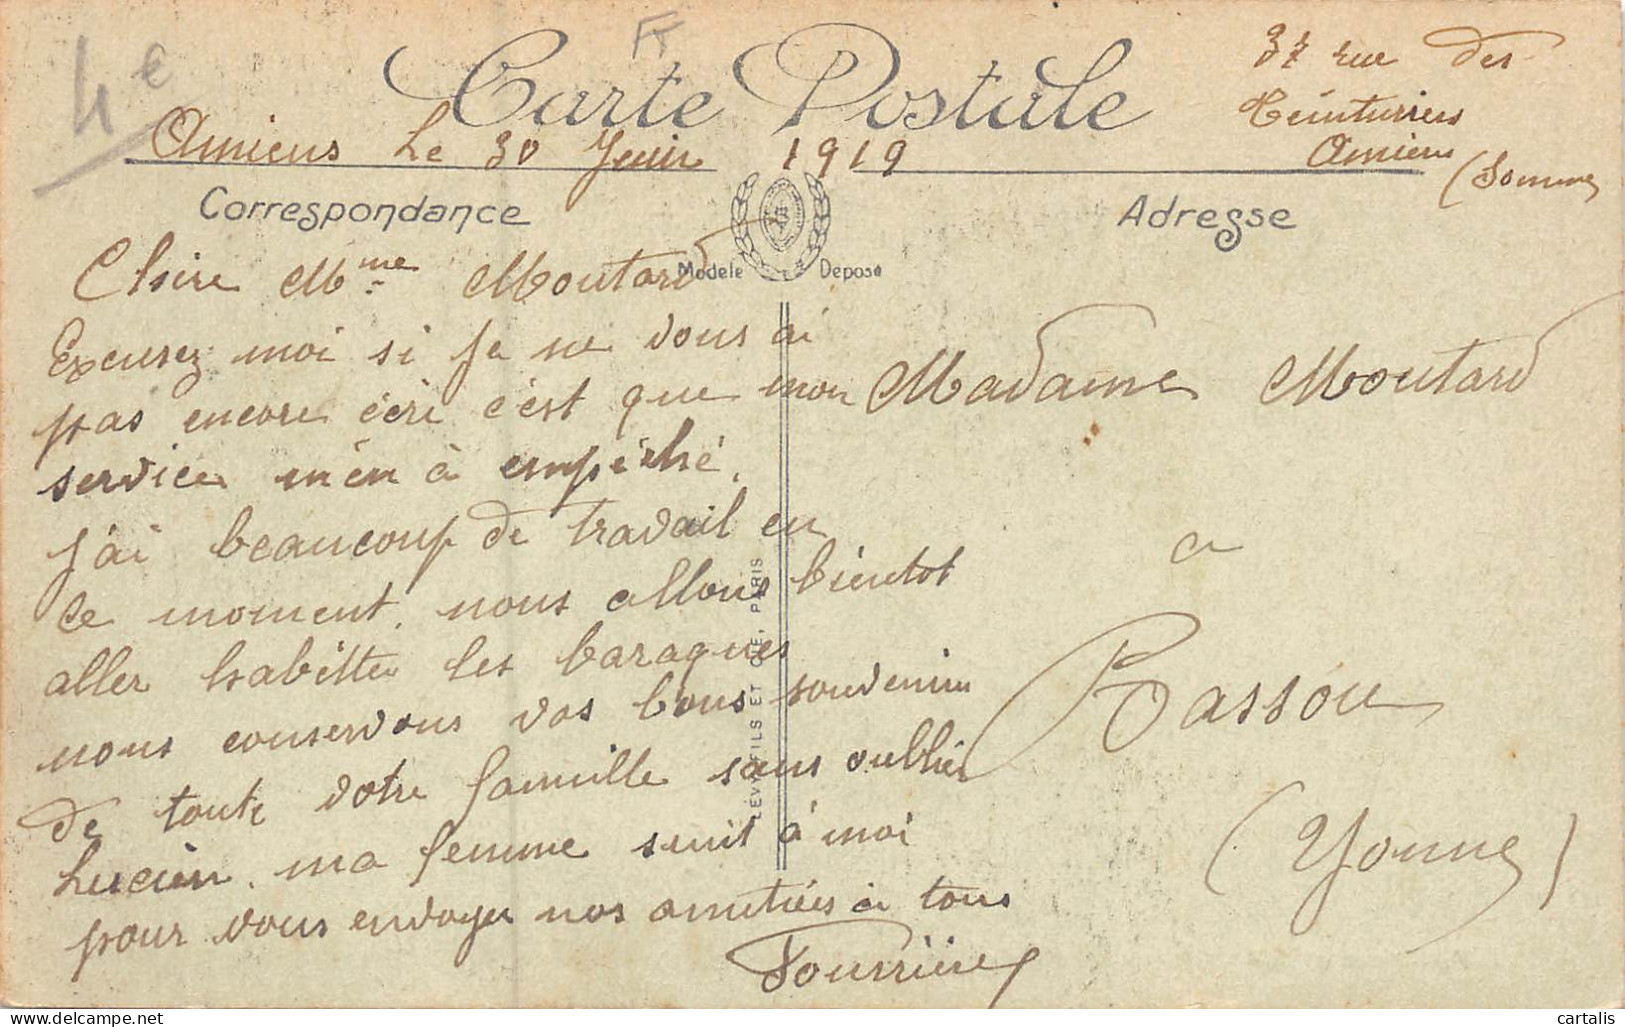 4e
Carte Postale
37 rue des
Teinturiers
Amiens
(Somme)
Amiens Le 30 Juin 1919
Correspondance
Adresse
Modèle Déposé
Chère Mme Moutard
Excusez moi si je ne vous ai
pas encore écri c'est que mon
service m'en à empêché.
J'ai beaucoup de travail en
ce moment. nous allons bientot
aller habitter les baraques
nous conservons vos bons souvenirs
de toute votre famille sans oublier
Lucien. ma femme sunit à moi
pour vous envoyer nos amitiés à tous
Fourrière
Madame Moutard
a
Bassou
(Yonne)
LEVY FILS ET CIE, PARIS
cartalis